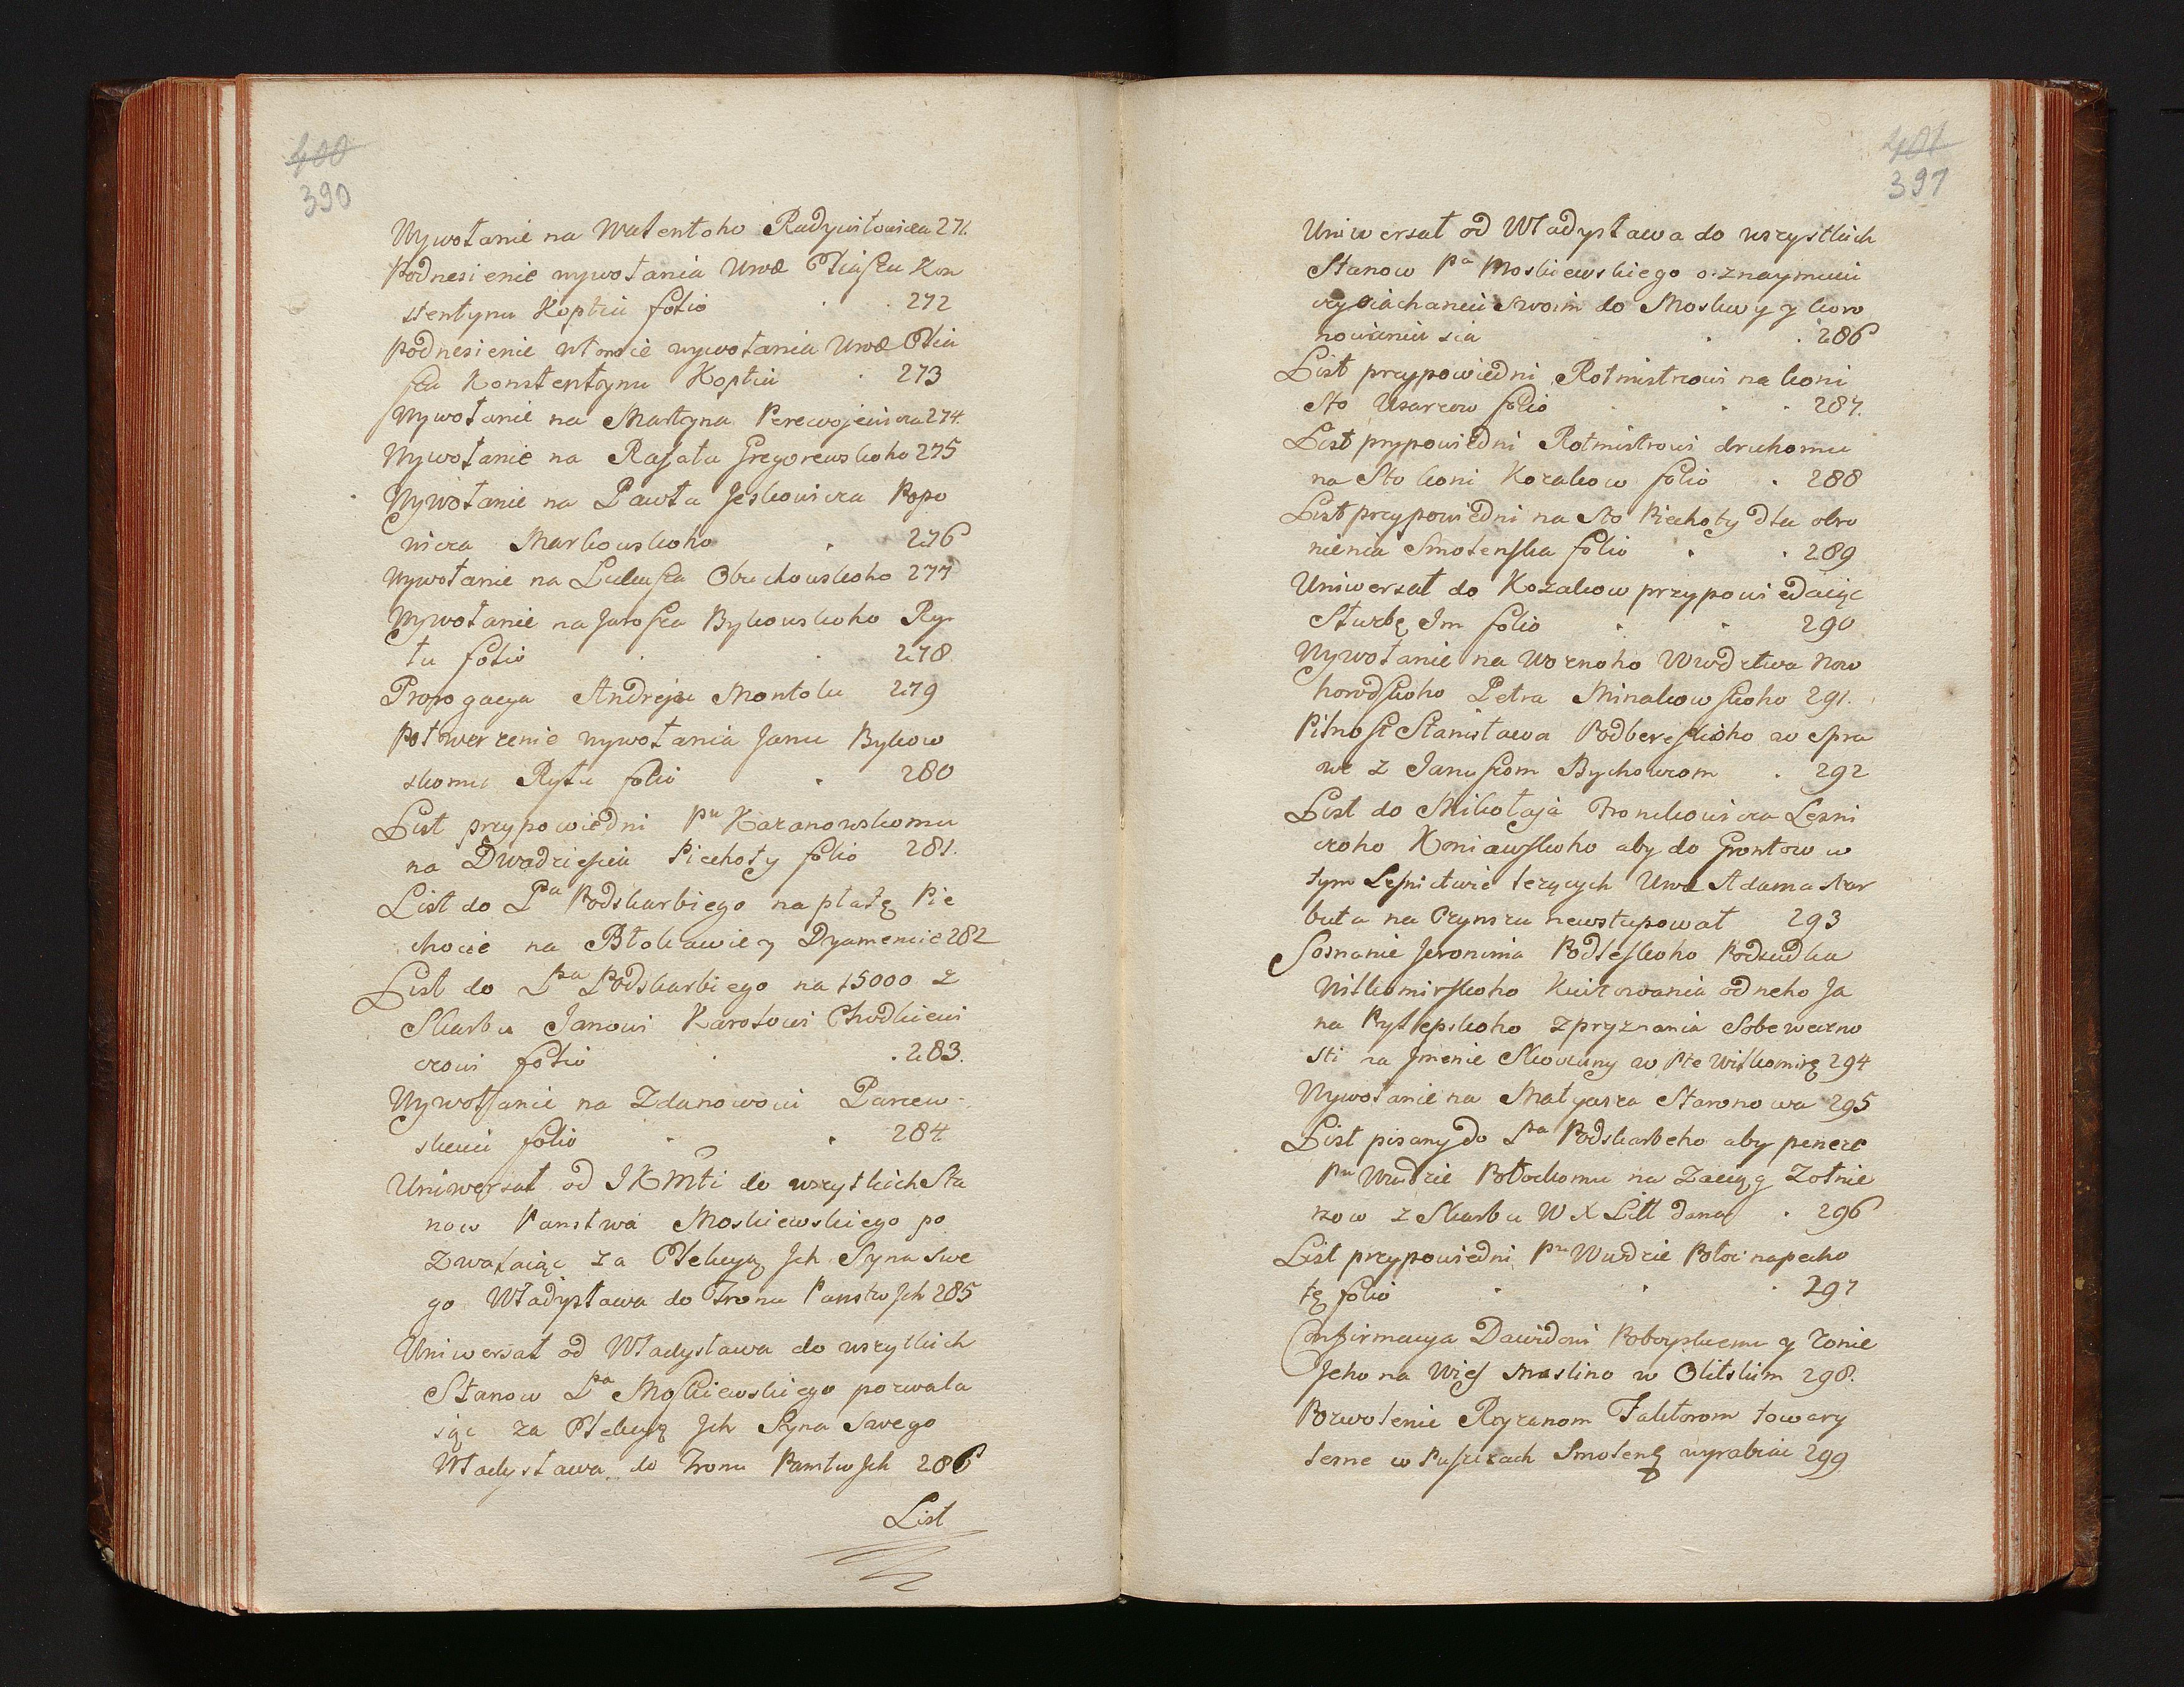 400
390
Wywołanie na Walentoho Radywiłowicza 271.
Podnesienie wywołania Urod Oliaszu Kon
stentynu Koptiu folio 272
Podnesienie wtoroie wywołania Urod Olia
szu Konstentynu Koptiu 273
Wywołanie na Martyna Perewojewicza 274.
Wywołanie na Rafała Gregorewskoho 275
Wywołanie na Pawła Jeskowicza Popo
wicza Markowskoho 276
Wywołanie na Lukasza Obuchowskoho 277
Wywołanie na Jarosza Bykowskoho Ry
tu folio 278
Prorogacya Andreju Montolu 279
Potwerzenie wywołania Janu Bykow
skomu Rytu folio 280
List przypowiedni Pu Kazanowskomu
na Dwadziesciu Piechoty folio 281.
List do Pa Podskarbiego na płatę Pie
chocie na Błokawie y Dyamencie 282
List do Pa Podskarbiego na 15000 z
Skarbu Janowi Karołowi Chodkiewi
czowi folio 283.
Wywołanie na Zdanowoiu Parcew
skuiu folio 284
Uniwersał od JKMti do wszytkich Sta
now Panstwa Moskiewskiego po
zwalaiąc za Elekcyą Jch Syna Swe
go Władysława do Tronu Panstw Jch 285
Uniwersał od Władysława do wszytkich
Stanow Pa Moskiewskiego pozwala
iąc za Elekcyą Jch Syna Swego
Władysława do Tronu Panstw Jch 286
List
401
391
Uniwersał od Władysława do wszystkich
Stanow Pa Moskiewskiego oznaymuiu
o wyiachaniu Swoim do Moskwy y koro
nowaniu sia 286
List przypowiedni Rotmistrzowi na koni
Sto Usarzow folio 287.
List przypowiedni Rotmistrowi druhomu
na Sto koni Kozakow folio 288
List przypowiedni na Sto Piechoty dla obro
nienia Smolenska folio 289
Uniwersał do Kozakow przypowiedaiąc
Służbę Im folio 290
Wywołanie na Woznoho Wwdztwa Now
horodskoho Petra Minakowskoho 291.
Pilnost Stanisława Podbereskoho w Spra
we z Januszom Bychowcom 292
List do Mikołaja Fronckowicza Lesni
czoho Koniawskoho aby do Grontow w
tym Lesnictwie leżących Urod Adama Nar
buta na Czynszu newstupował 293
Soznanie Jeronima Podleskoho Podsudka
Wilkomirskoho Kwitowania od neho Ja
na Rytlepskoho z pryznania Sobe weczno
sti na Jmenie Skowiany w Pte Wilkomirę 294
Wywołanie na Matyasza Staronowa 295
List pisany do Pa Podskarbeho aby peneze
Pu Wwdzie Połockomu na Zaciąg Zołnie
rzow z Skarbu W X Litt dana 296
List przypowiedni Pu Wwdzie Połoc na pecho
tę folio 297
Confirmacya Dawidowi Poboyskuemu y Zonie
Jeho na Wies Maslino w Olitskim 298.
Pozwolenie Ryzanom Faktorom towary
lesne w Puszczach Smolensę wyrabiac 299